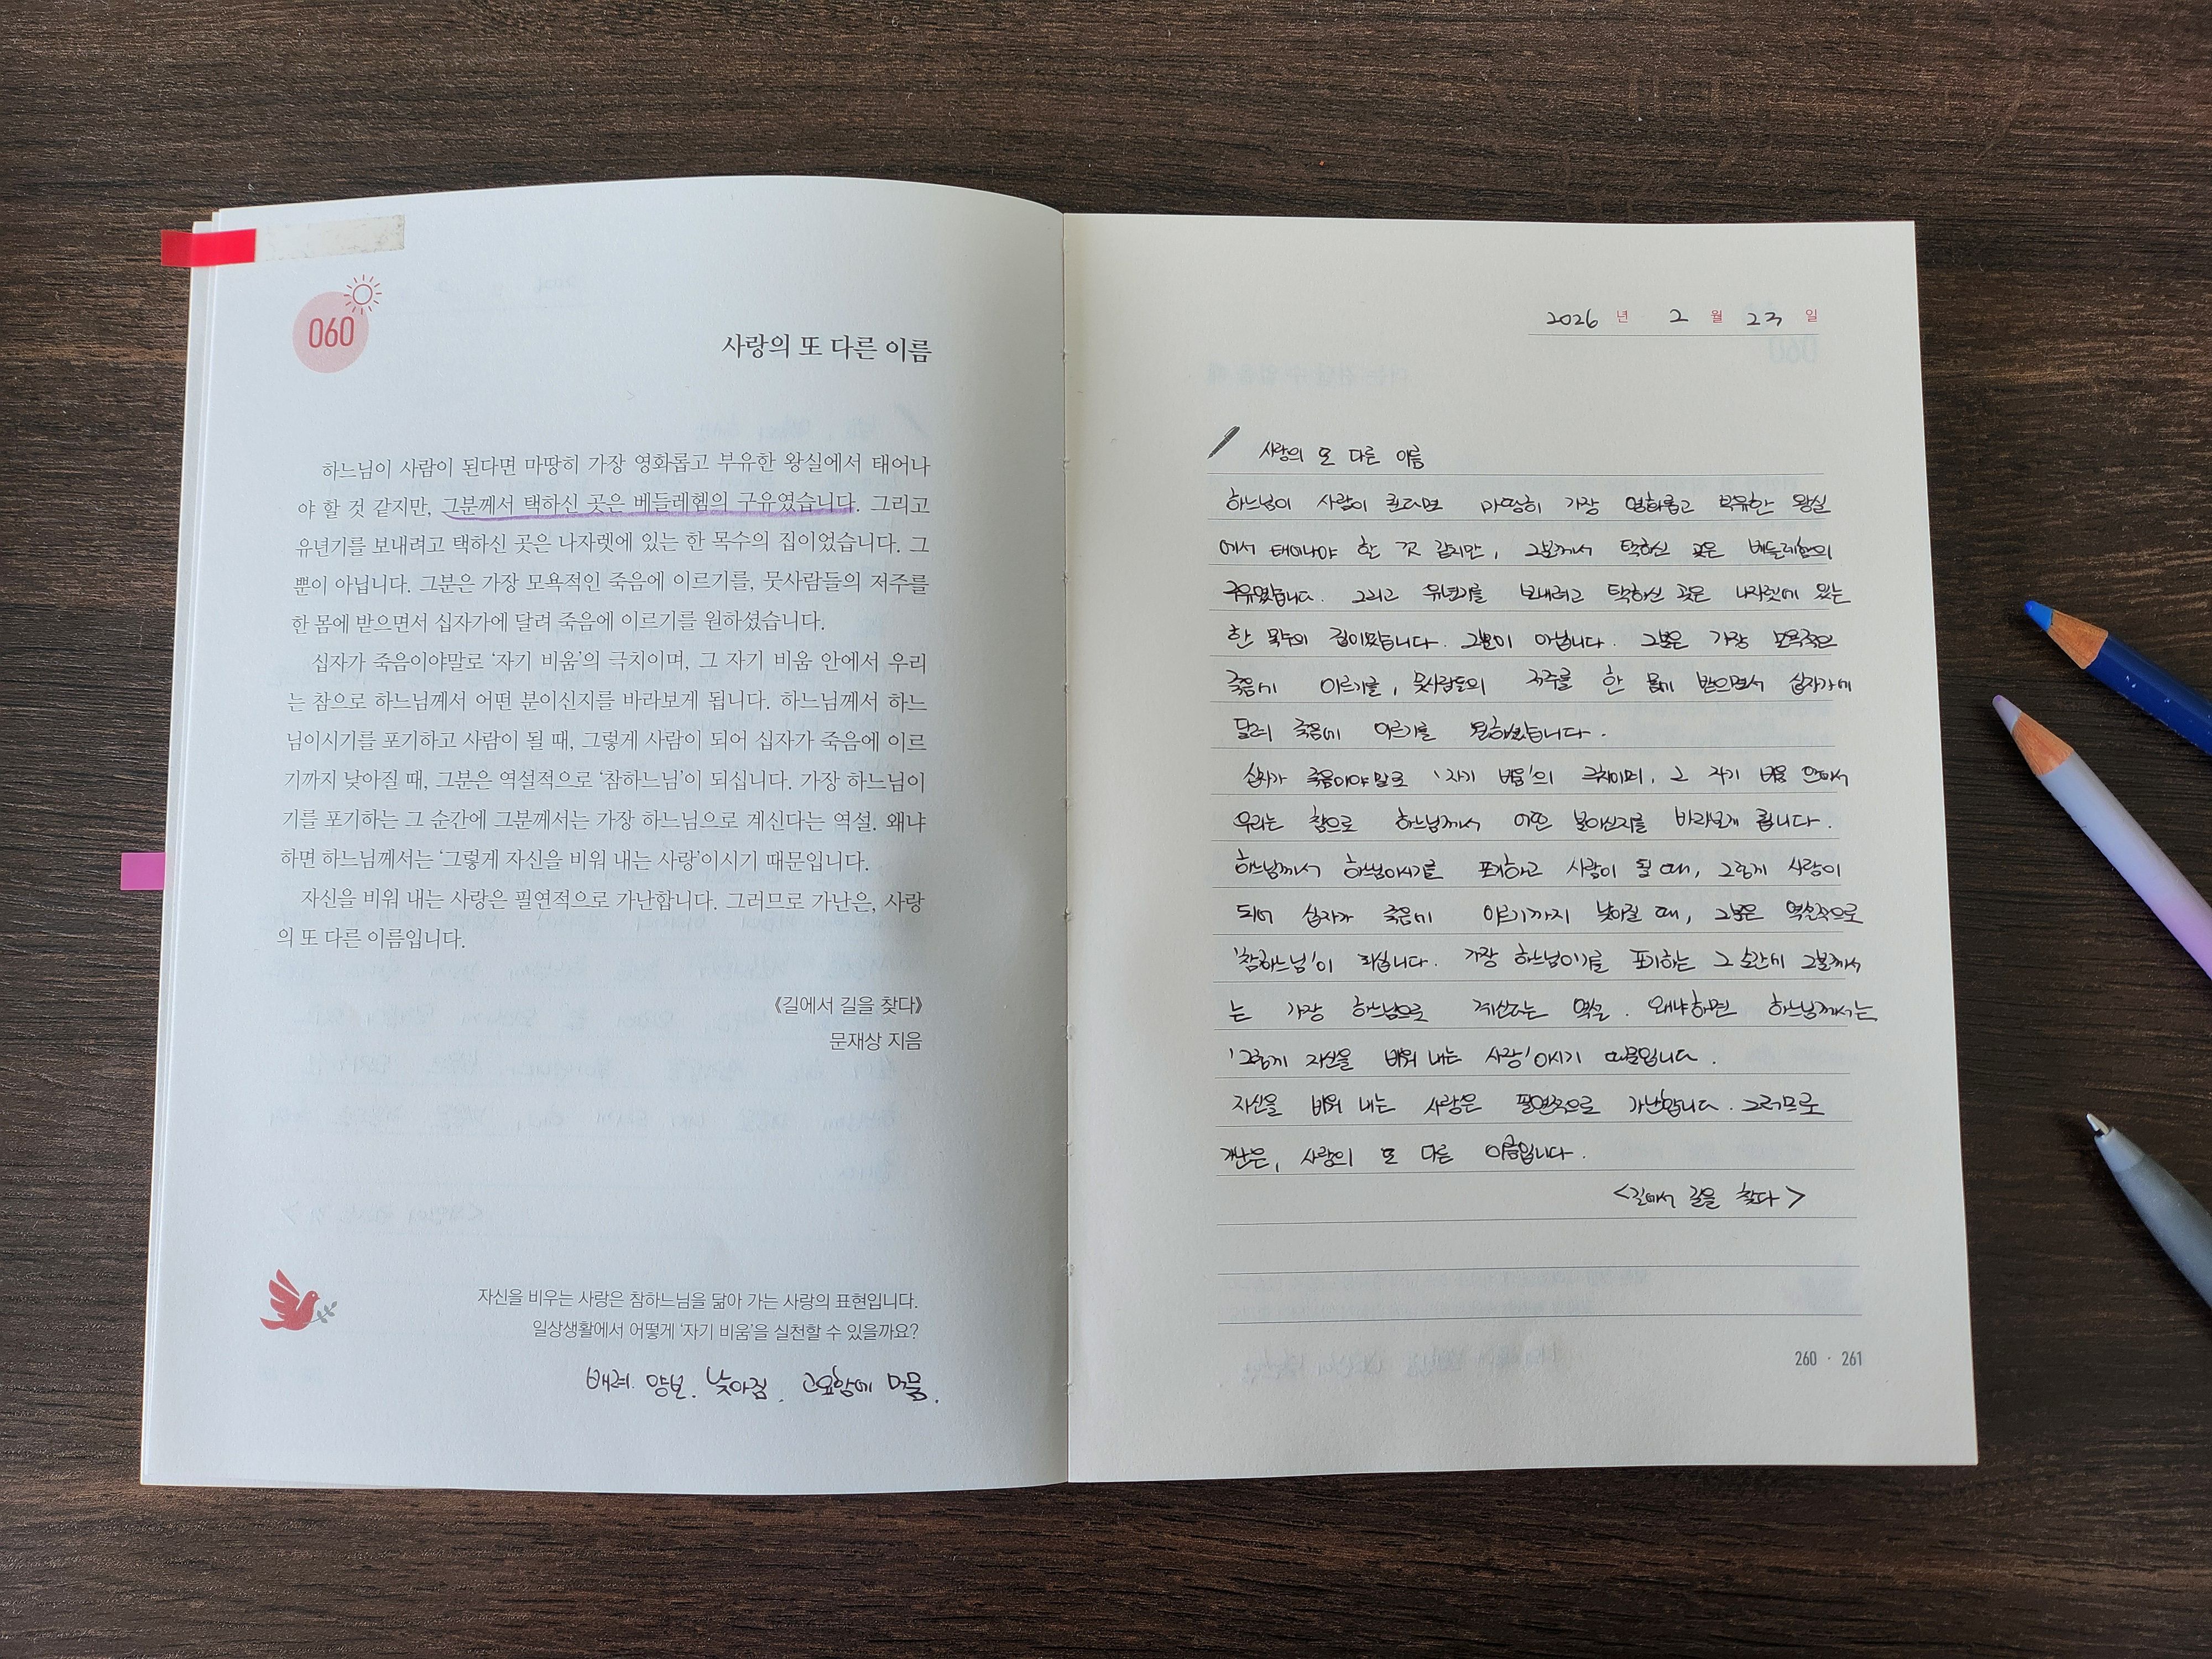 060
사랑의 또 다른 이름
하느님이 사람이 된다면 마땅히 가장 영화롭고 부유한 왕실에서 태어나
야 할 것 같지만, 그분께서 택하신 곳은 베들레헴의 구유였습니다. 그리고
유년기를 보내려고 택하신 곳은 나자렛에 있는 한 목수의 집이었습니다. 그
뿐이 아닙니다. 그분은 가장 모욕적인 죽음에 이르기를, 뭇사람들의 저주를
한 몸에 받으면서 십자가에 달려 죽음에 이르기를 원하셨습니다.
십자가 죽음이야말로 ‘자기 비움’의 극치이며, 그 자기 비움 안에서 우리
는 참으로 하느님께서 어떤 분이신지를 바라보게 됩니다. 하느님께서 하느
님이시기를 포기하고 사람이 될 때, 그렇게 사람이 되어 십자가 죽음에 이르
기까지 낮아질 때, 그분은 역설적으로 ‘참하느님’이 되십니다. 가장 하느님이
기를 포기하는 그 순간에 그분께서는 가장 하느님으로 계신다는 역설. 왜냐
하면 하느님께서는 ‘그렇게 자신을 비워 내는 사랑’이시기 때문입니다.
자신을 비워 내는 사랑은 필연적으로 가난합니다. 그러므로 가난은, 사랑
의 또 다른 이름입니다.
《길에서 길을 찾다》
문재상 지음
자신을 비우는 사랑은 참하느님을 닮아 가는 사랑의 표현입니다.
일상생활에서 어떻게 ‘자기 비움’을 실천할 수 있을까요?
배려. 양보. 낮아짐. 고요함에 머묾.
2026 년 2 월 23 일
사랑의 또 다른 이름
하느님이 사람이 된다면 마땅히 가장 영화롭고 부유한 왕실
에서 태어나야 할 것 같지만, 그분께서 택하신 곳은 베들레헴의
구유였습니다. 그리고 유년기를 보내려고 택하신 곳은 나자렛에 있는
한 목수의 집이었습니다. 그뿐이 아닙니다. 그분은 가장 모욕적인
죽음에 이르기를, 뭇사람들의 저주를 한 몸에 받으면서 십자가에
달려 죽음에 이르기를 원하셨습니다.
십자가 죽음이야말로 '자기 비움'의 극치이며, 그 자기 비움 안에서
우리는 참으로 하느님께서 어떤 분이신지를 바라보게 됩니다.
하느님께서 하느님이시기를 포기하고 사람이 될 때, 그렇게 사람이
되어 십자가 죽음에 이르기까지 낮아질 때, 그분은 역설적으로
'참하느님'이 되십니다. 가장 하느님이기를 포기하는 그 순간에 그분께서
는 가장 하느님으로 계신다는 역설. 왜냐하면 하느님께서는
'그렇게 자신을 비워 내는 사랑'이시기 때문입니다.
자신을 비워 내는 사랑은 필연적으로 가난합니다. 그러므로
가난은, 사랑의 또 다른 이름입니다.
<길에서 길을 찾다>
260 · 261